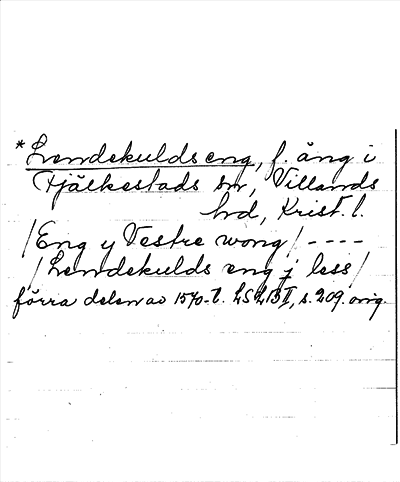 *Lendekulds eng, f. äng i
Kjälkestads sn, Villands
hd, Krist. l.
/Eng y Vestre wong/ ----
/Lendekulds eng j less/
förra delen av 1570-t. LSLB II, s. 209. orig.